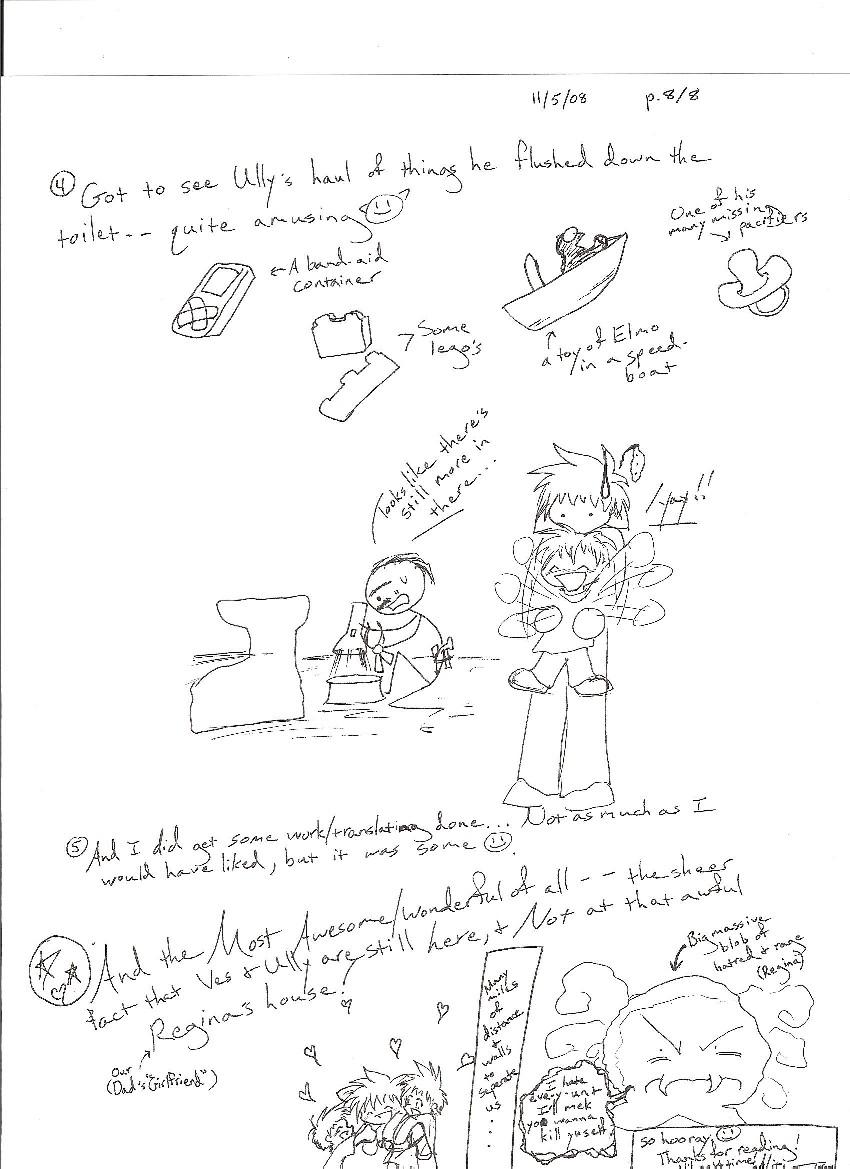 11/5/08 p.8/8
④ Got to see Ully's haul of things he flushed down the
toilet-- quite amusing
←A band-aid
container
Some
lego's
a toy of Elmo
in a speed-
boat
One of his
many missing
pacifiers
looks like there's
still more in
there...
yay!!
⑤ And I did get some work/translating done... Not as much as I
would have liked, but it was some ☺.
And the Most Awesome/wonderful of all -- the sheer
fact that Ves + Ully are still here, + Not at that awful
Regina's house!
Our
(Dad's "Girlfriend")
Many
miles
of
distance
+
walls
to
seperate
us
...
Big massive
blob of
hatred + rage
(Regina)
I hate
every-unt
I'll mek
you wanna
kill yuself.
so hooray ☺
Thanks for reading!